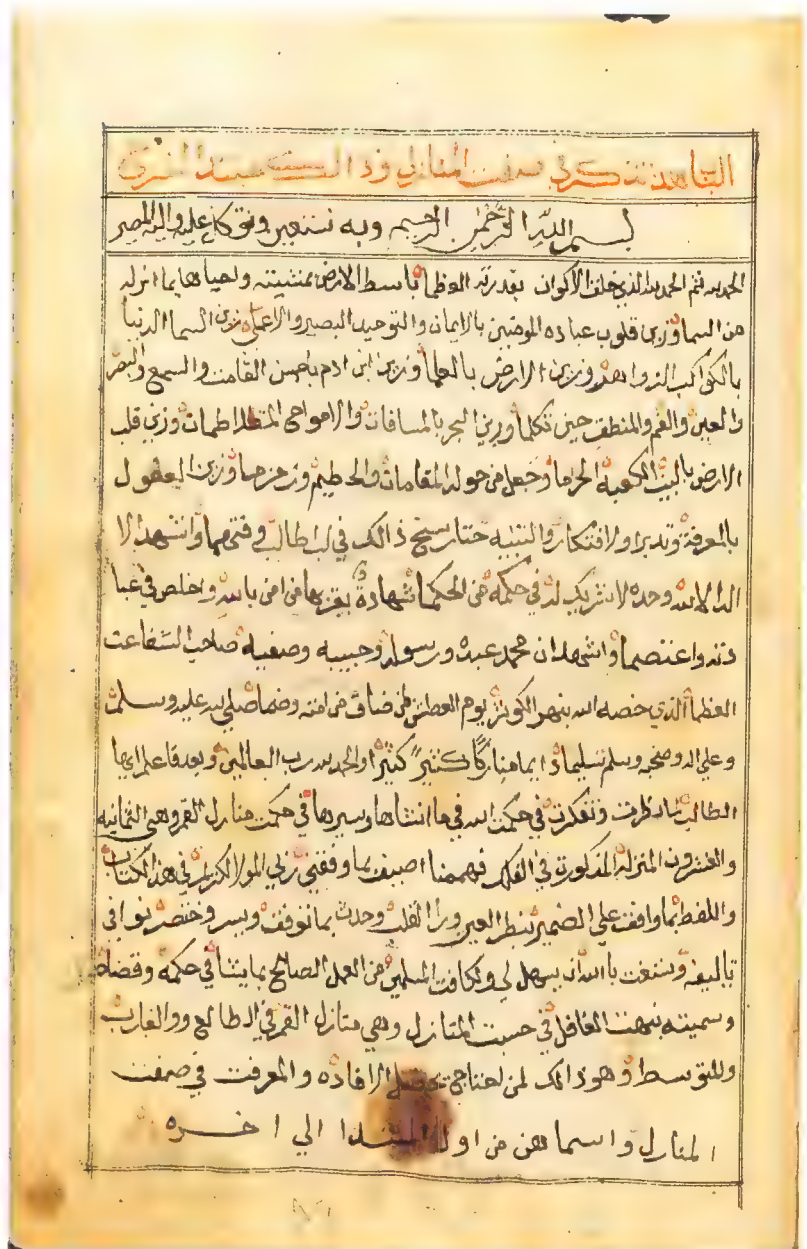 المنازل
بسم الله الرحمن الرحيم وبه نستعين ونتوكل عليه واليه المصير
الحمد لله ثم الحمد لله الذي خلق الاكوان بقدرته العظما باسط الارض بمشيته واحياها بما انزله
من السما وزين قلوب عباده المومنين بالايمان والتوحيد البصير والاعما وزين السما الدنيا
بالكواكب الزواهر وزين الارض بالعلما وزين ابن ادم باحسن القامت والسمع والبصر
والعين والفم والمنطق حين تكلما وزين البحر بالمسافات والامواج المتطلاطمات وزين قلب
الارض بالبيت الكعبة الحرما وجعل من حوله المقامات والحطيم وزمزما وزين العقول
بالمعرفة وتدبرا والافتكار والتنبيه حتا رسخ ذالك في لب طالب وفتى مهما واشهد الا
اله الا الله وحده لا شريك له في حكمه من الحكما شهادة يقر بها من امن بالله واخلص في عبا
دته واعتصما واشهد ان محمد عبده ورسوله وحبيبه وصفيه صاحب الشفاعت
العظما الذي خصه الله بنهر الكوثر يوم العطش من ضاق من امته وضما صلي الله عليه وسلمت
وعلي اله وصحبه وسلم تسليما دايما مباركا كثيرً كثيرا والحمد لله رب العالمين وبعد فاعلم ايها
الطالب لما نظرت وتفكرت في حكمت الله في ما انشاها وسيرها في حكمت منازل القمر وهي الثمانيه
والعشرون المنزله المذكورة في الفلك فهممنا اصيف بما وفقني ربي المولا الكريم في هذا الكتاب
واللفظ بما وافت علي الضمير بنظر العين ورا القلب وحدث بما توفقت ويسر وختصر نوا في
تاليفه وستعنت باالله ان يسهل لي ولكافت المسلمين من العمل الصالح بما يشا في حكمه وقضاه
وسميته نبهت الغافل في حسبت المنازل وهي منازل القمر في الطالع ووالغارب
والمتوسط وهو ذالك لمن احتاج الافاده والمعرفت في صفت
المنازل واسماهن من اول المبتدا الي اخره